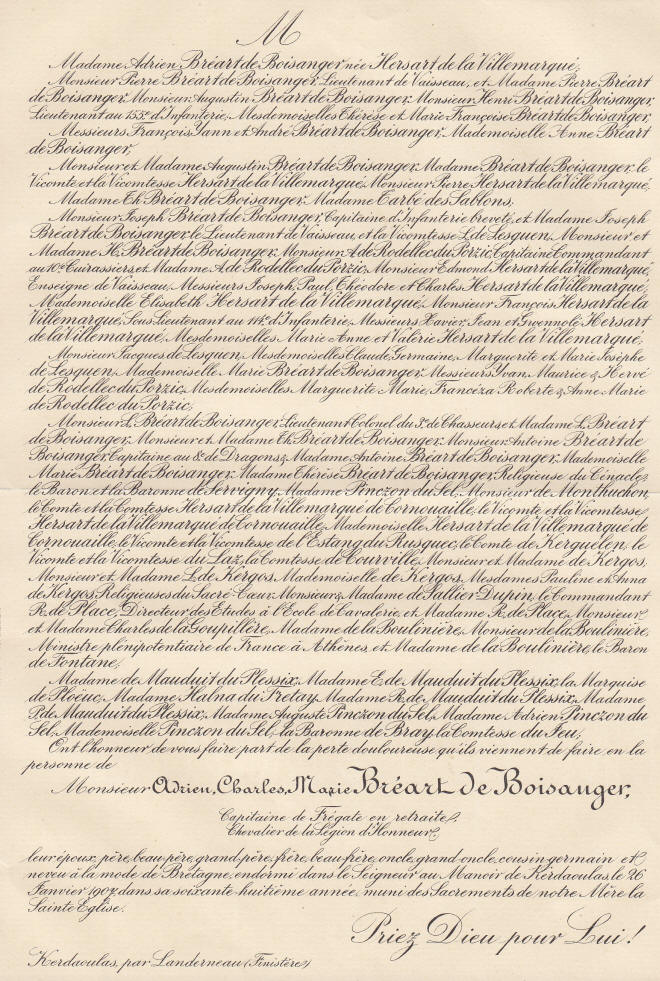 M
Madame Adrien Bréart de Boisanger née Hersart de la Villemarqué,
Monsieur Pierre Bréart de Boisanger, Lieutenant de Vaisseau, et Madame Pierre Bréart
de Boisanger, Monsieur Augustin Bréart de Boisanger, Monsieur Henri Bréart de Boisanger,
Lieutenant au 155e d'Infanterie, Mesdemoiselles Thérèse et Marie Françoise Bréart de Boisanger,
Messieurs François, Yann et André Bréart de Boisanger, Mademoiselle Anne Bréart
de Boisanger,
Monsieur et Madame Augustin Bréart de Boisanger, Madame Bréart de Boisanger, le
Vicomte et la Vicomtesse Hersart de la Villemarqué, Monsieur Pierre Hersart de la Villemarqué,
Madame Ch. Bréart de Boisanger, Madame Carbe des Sablons,
Monsieur Joseph Bréart de Boisanger, Capitaine d'Infanterie breveté, et Madame Joseph
Bréart de Boisanger, le Lieutenant de Vaisseau, et la Vicomtesse L. de Lesguen, Monsieur et
Madame H. Bréart de Boisanger, Monsieur A. de Rodellec du Porzic, Capitaine Commandant
au 10e Cuirassiers, et Madame A. de Rodellec du Porzic, Monsieur Edmond Hersart de la Villemarqué,
Enseigne de Vaisseau, Messieurs Joseph, Paul, Théodore et Charles Hersart de la Villemarqué,
Mademoiselle Elisabeth Hersart de la Villemarqué, Monsieur François Hersart de la
Villemarqué, Sous-Lieutenant au 114e d'Infanterie, Messieurs Xavier, Jean et Gwennolé Hersart
de la Villemarqué, Mesdemoiselles Marie Anne et Valérie Hersart de la Villemarqué,
Monsieur Jacques de Lesguen, Mesdemoiselles Claude, Germaine, Marguerite et Marie Josèphe
de Lesguen, Mademoiselle Marie Bréart de Boisanger, Messieurs Yvan, Maurice & Hervé
de Rodellec du Porzic, Mesdemoiselles Marguerite Marie, Franceza, Roberte & Anne Marie
de Rodellec du Porzic,
Monsieur L. Bréart de Boisanger, Lieutenant Colonel du 3e de Chasseurs, et Madame L. Bréart
de Boisanger, Monsieur et Madame Ch. Bréart de Boisanger, Monsieur Antoine Bréart de
Boisanger, Capitaine au de Dragons, & Madame Antoine Bréart de Boisanger, Mademoiselle
Marie Bréart de Boisanger, Madame Thérèse Bréart de Boisanger, Religieuse du Cénacle,
le Baron et la Baronne de Servigny, Madame Pinczon du Sel, Monsieur de Monthuchon,
le Comte et la Comtesse Hersart de la Villemarqué de Cornouaille, le Vicomte et la Vicomtesse
Hersart de la Villemarqué de Cornouaille, Mademoiselle Hersart de la Villemarqué de
Cornouaille, le Vicomte et la Vicomtesse de l'Estang du Rusquec, le Comte de Kerguélen, le
Vicomte et la Vicomtesse du Laz, la Comtesse de Courville, Monsieur et Madame de Kergos,
Monsieur et Madame L. de Kergos, Mademoiselle de Kergos, Mesdames Pauline et Anna
de Kergos, Religieuses du Sacré-Cœur, Monsieur & Madame de Sallier Dupin, le Commandant
R. de Place, Directeur des Etudes à l'Ecole de Cavalerie, et Madame R. de Place, Monsieur
et Madame Charles de la Goupillère, Madame de la Boulinière, Monsieur de la Boulinière,
Ministre plénipotentiaire de France à Athènes, et Madame de la Boulinière, le Baron
de Fontane,
Madame de Mauduit du Plessix, Madame E. de Mauduit du Plessix, la Marquise
de Plœuc, Madame Halna du Fretay, Madame R. de Mauduit du Plessix, Madame
P. de Mauduit du Plessix, Madame Auguste Pinczon du Sel, Madame Adrien Pinczon du
Sel, Mademoiselle Pinczon du Sel, la Baronne de Bray, la Comtesse du Feu,
Ont l'honneur de vous faire part de la perte douloureuse qu'ils viennent de faire en la
personne de
Monsieur Adrien, Charles, Marie Bréart de Boisanger,
Capitaine de Frégate en retraite,
Chevalier de la Légion d'Honneur,
leur époux, père, beau-père, grand-père, frère, beau-frère, oncle, grand-oncle, cousin-germain et
neveu à la mode de Bretagne, endormi dans le Seigneur au Manoir de Kerdaoulas, le 26
Janvier 1907, dans sa soixante huitième année, muni des Sacrements de notre Mère la
Sainte Eglise.
Priez Dieu pour Lui !
Kerdaoulas, par Landerneau (Finistère)